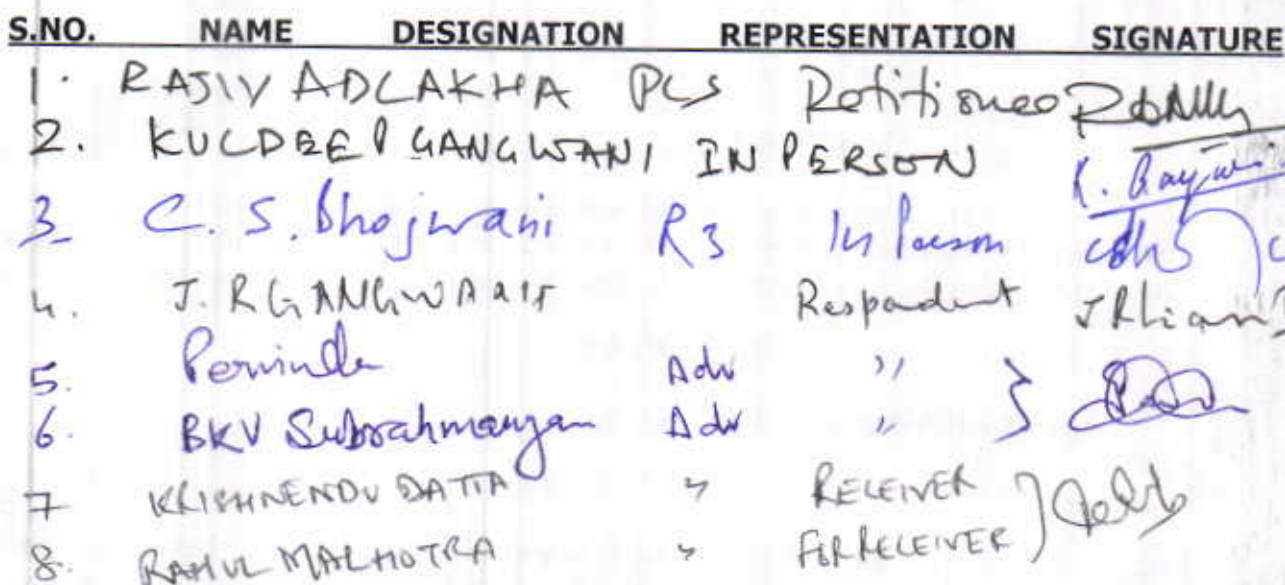 S.NO. NAME DESIGNATION REPRESENTATION SIGNATURE
1. RAJIV ADLAKHA PCS Petitioner
2. KULDEEP GANGWANI IN PERSON
3. C. S. Bhojwani R3 In Person
4. J. R GANGWANI Respondent
5. Perminder Adv "
6. BKV Subrahmanyam Adv "
7 KRISHNENDU DATTA " RECEIVER
8. RAHUL MALHOTRA " FOR RECEIVER